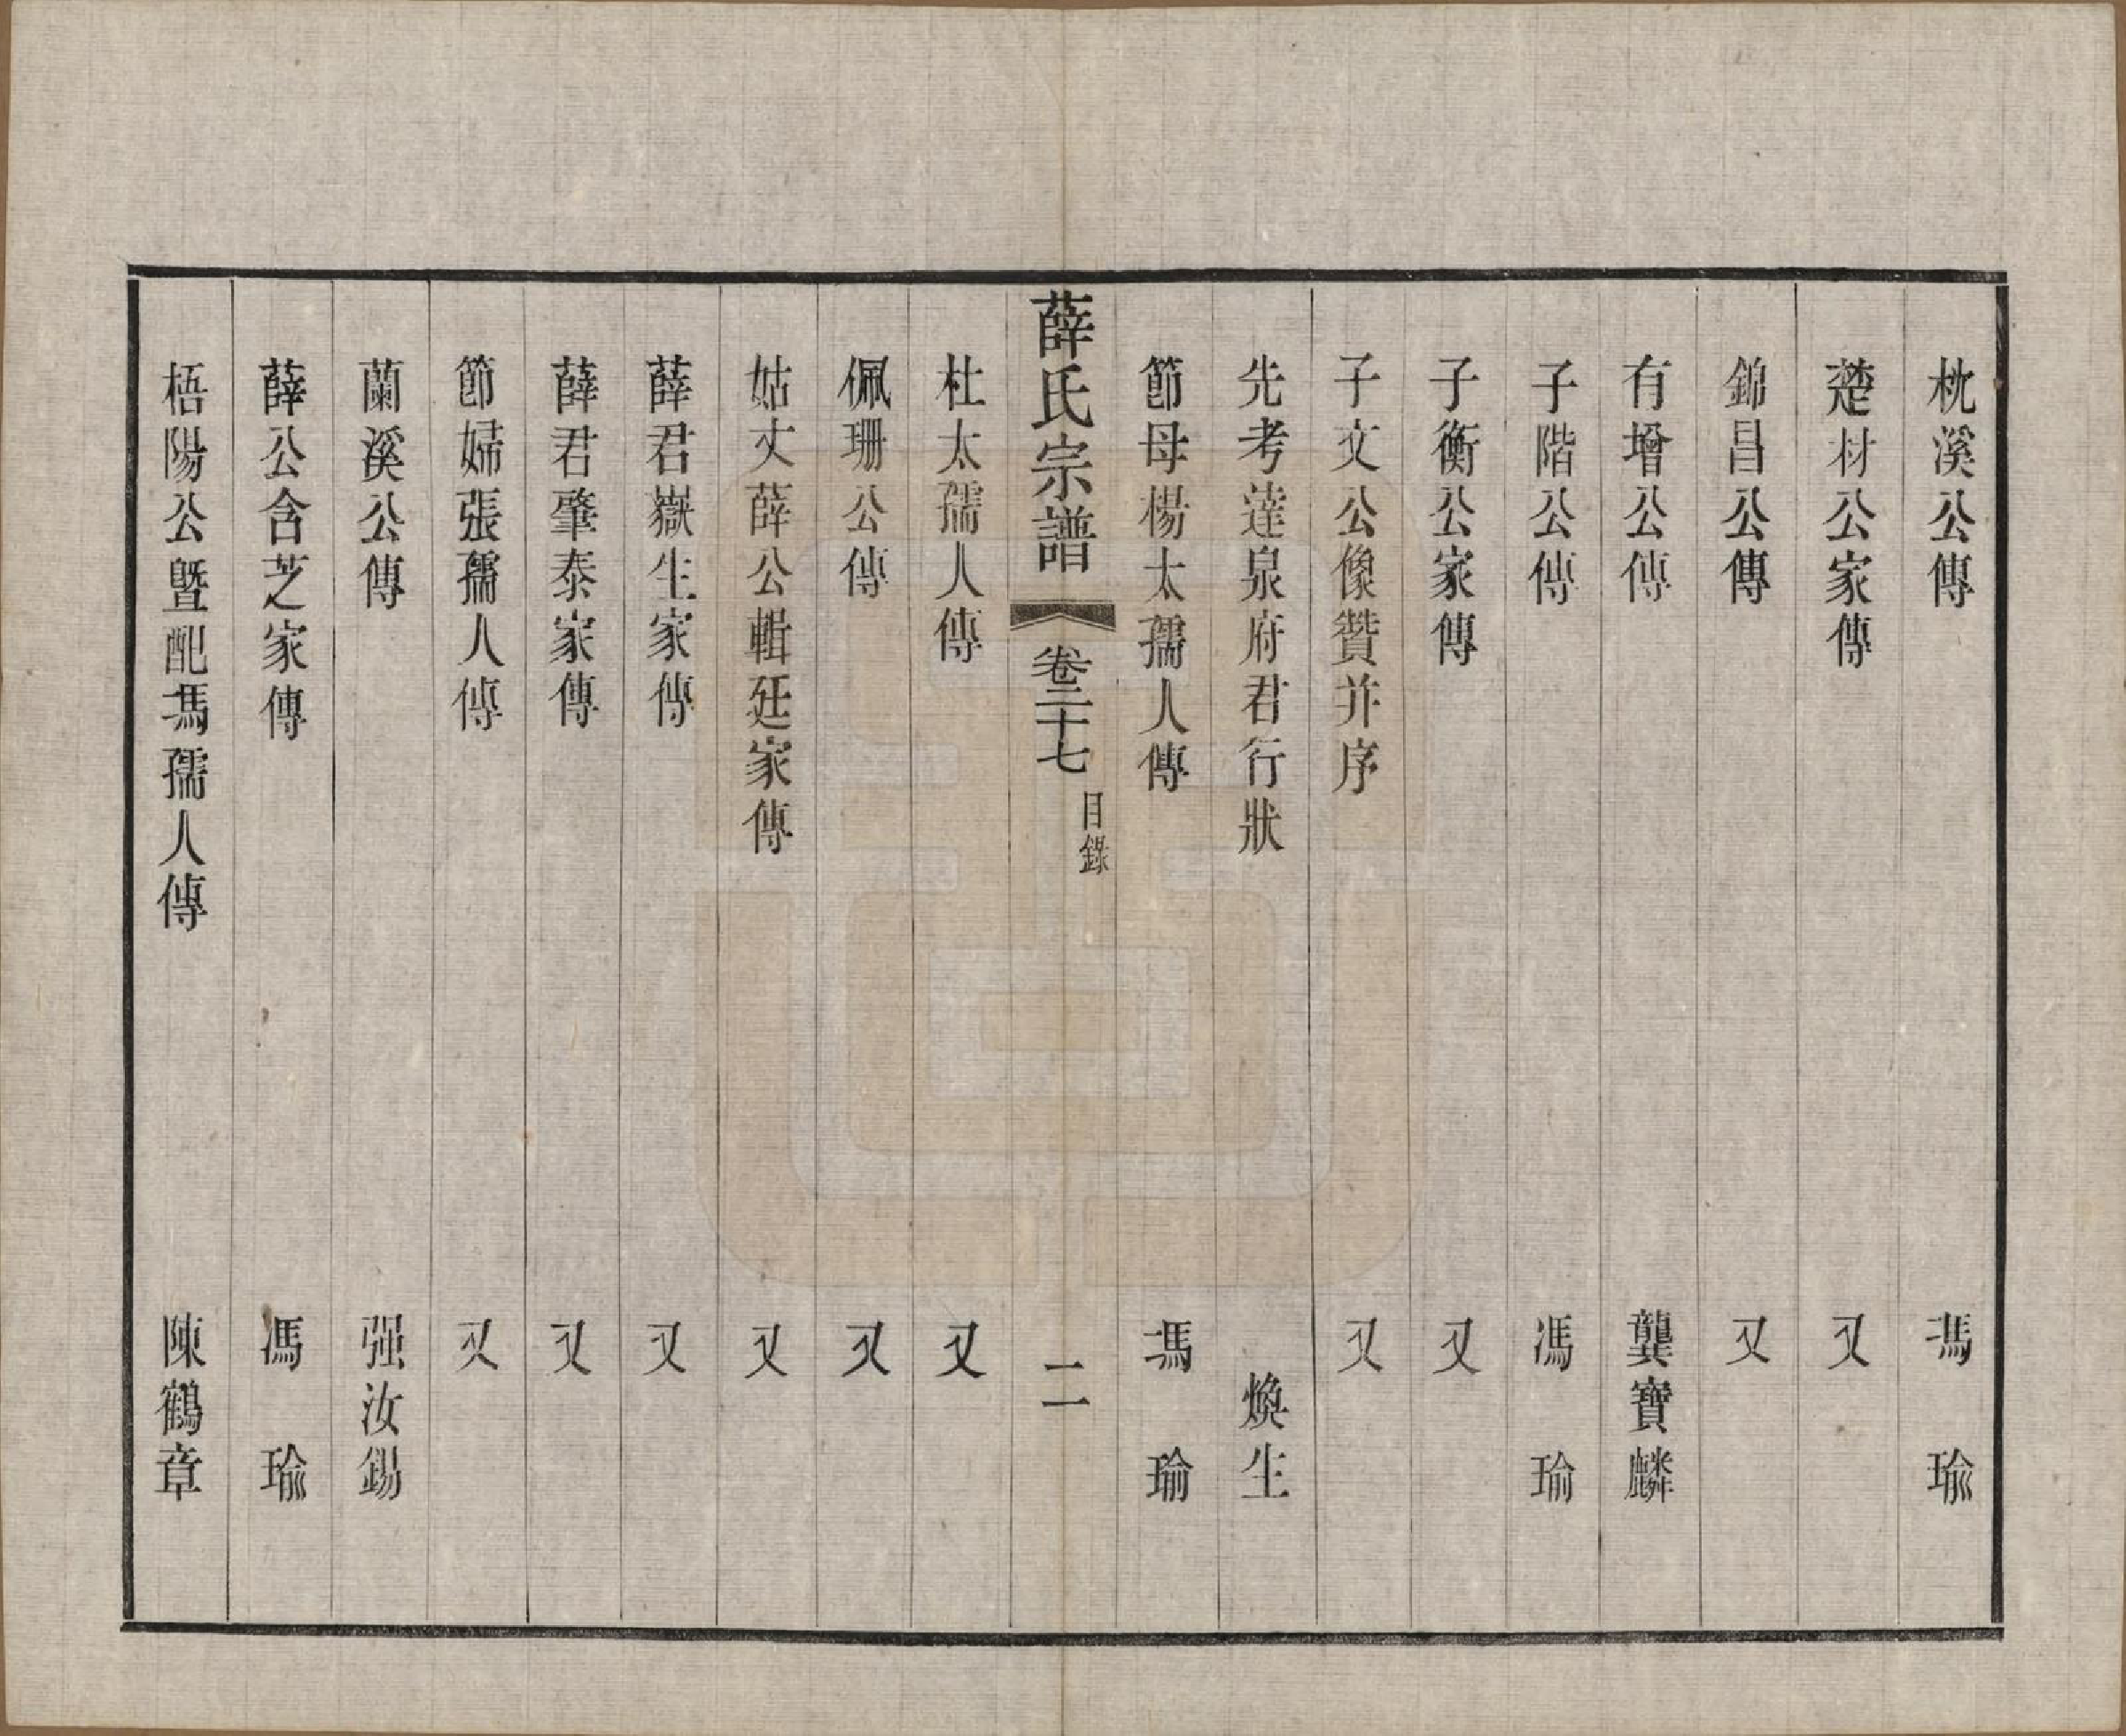 枕溪公傳　馮瑜
楚材公家傳　又
錦昌公傳　又
有增公傳　龔寶麟
子階公傳　馮瑜
子衡公家傳　又
子文公像贊并序　又
先考蓬泉府君行狀　煥生
節母楊太孺人傳　馮瑜
薛氏宗譜　卷二十七　目錄　二
杜太孺人傳　又
佩珊公傳　又
姑丈薛公輯廷家傳　又
薛君嶽生家傳　又
薛君肇泰家傳　又
節婦張孺人傳　又
蘭溪公傳　强汝錫
薛公含芝家傳　馮瑜
梧陽公暨配馮孺人傳　陳鶴章